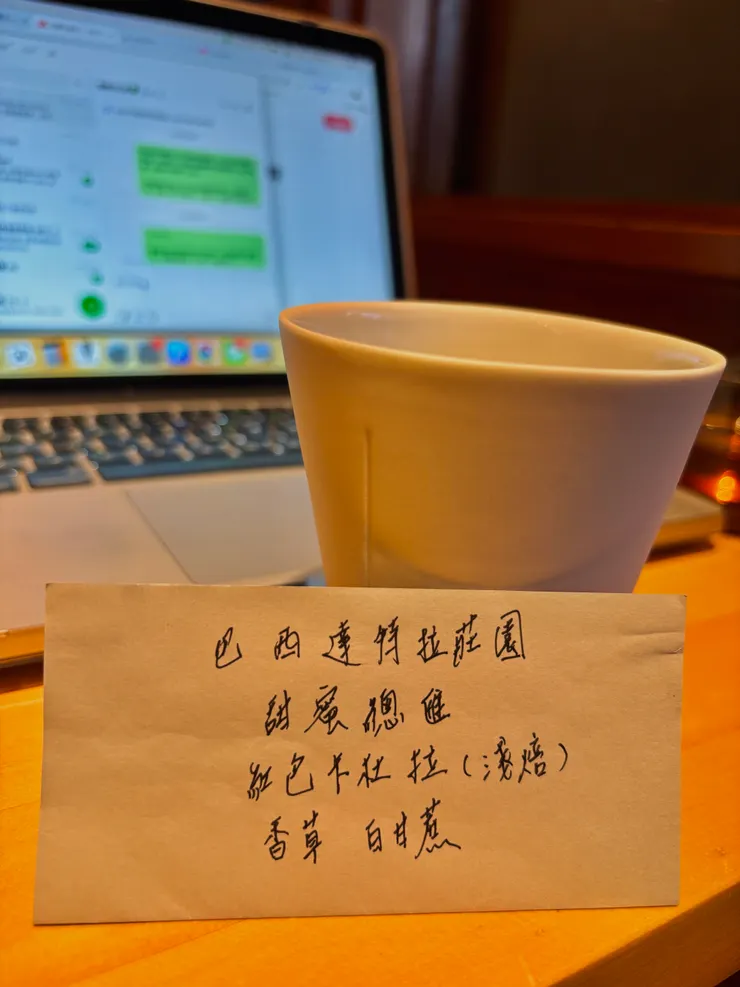 巴西達特拉莊園
甜蜜總匯
紅色卡杜拉(淺焙)
香草 白甘蔗